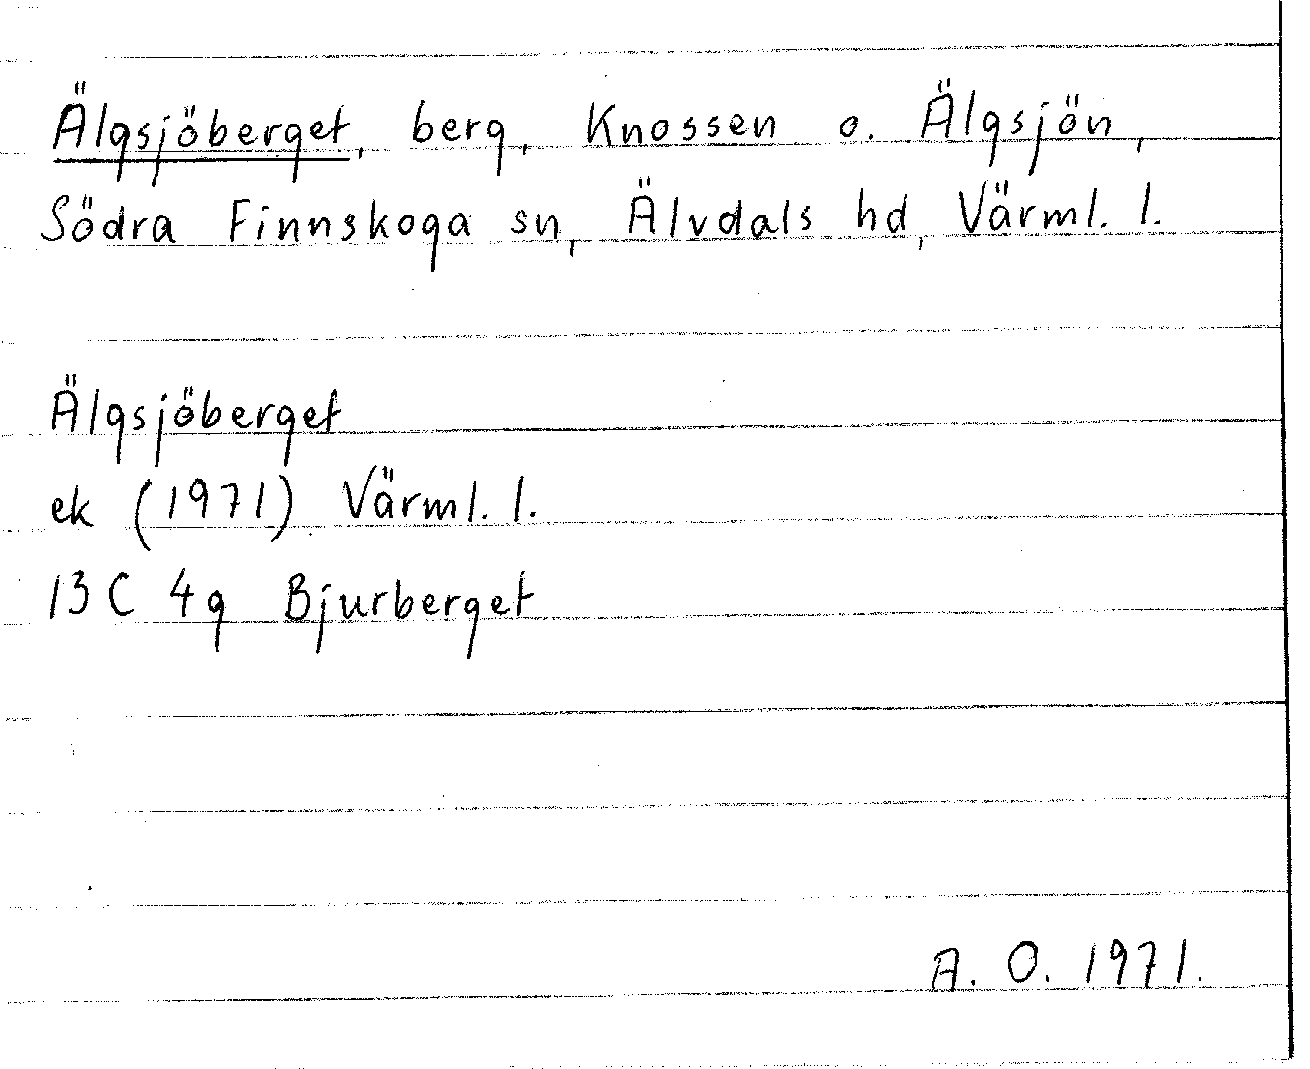 Älgsjöberget, berg, Knossen o. Älgsjön,
Södra Finnskoga sn, Älvdals hd, Värml. l.
Älgsjöberget
ek (1971) Värml. l.
13 C 4g Bjurberget
A. O. 1971.